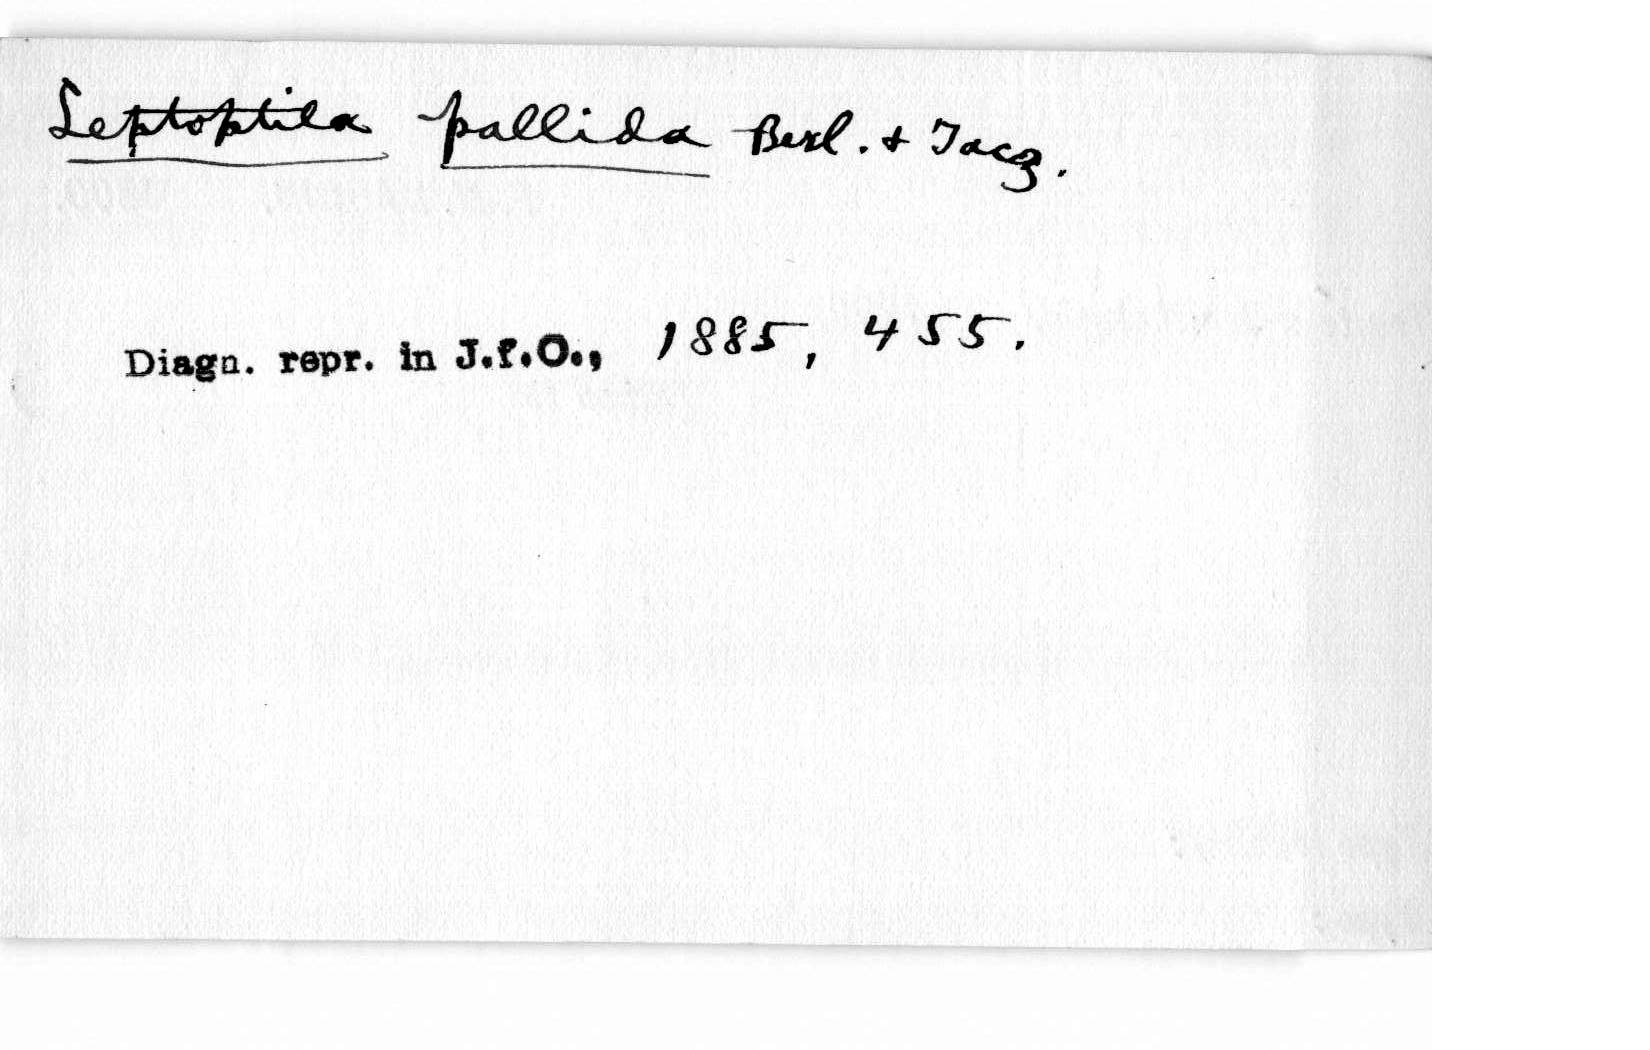 Leptoptila pallida Berl. & Tacz.
Diagn. repr. in J.f.O., 1885, 455.